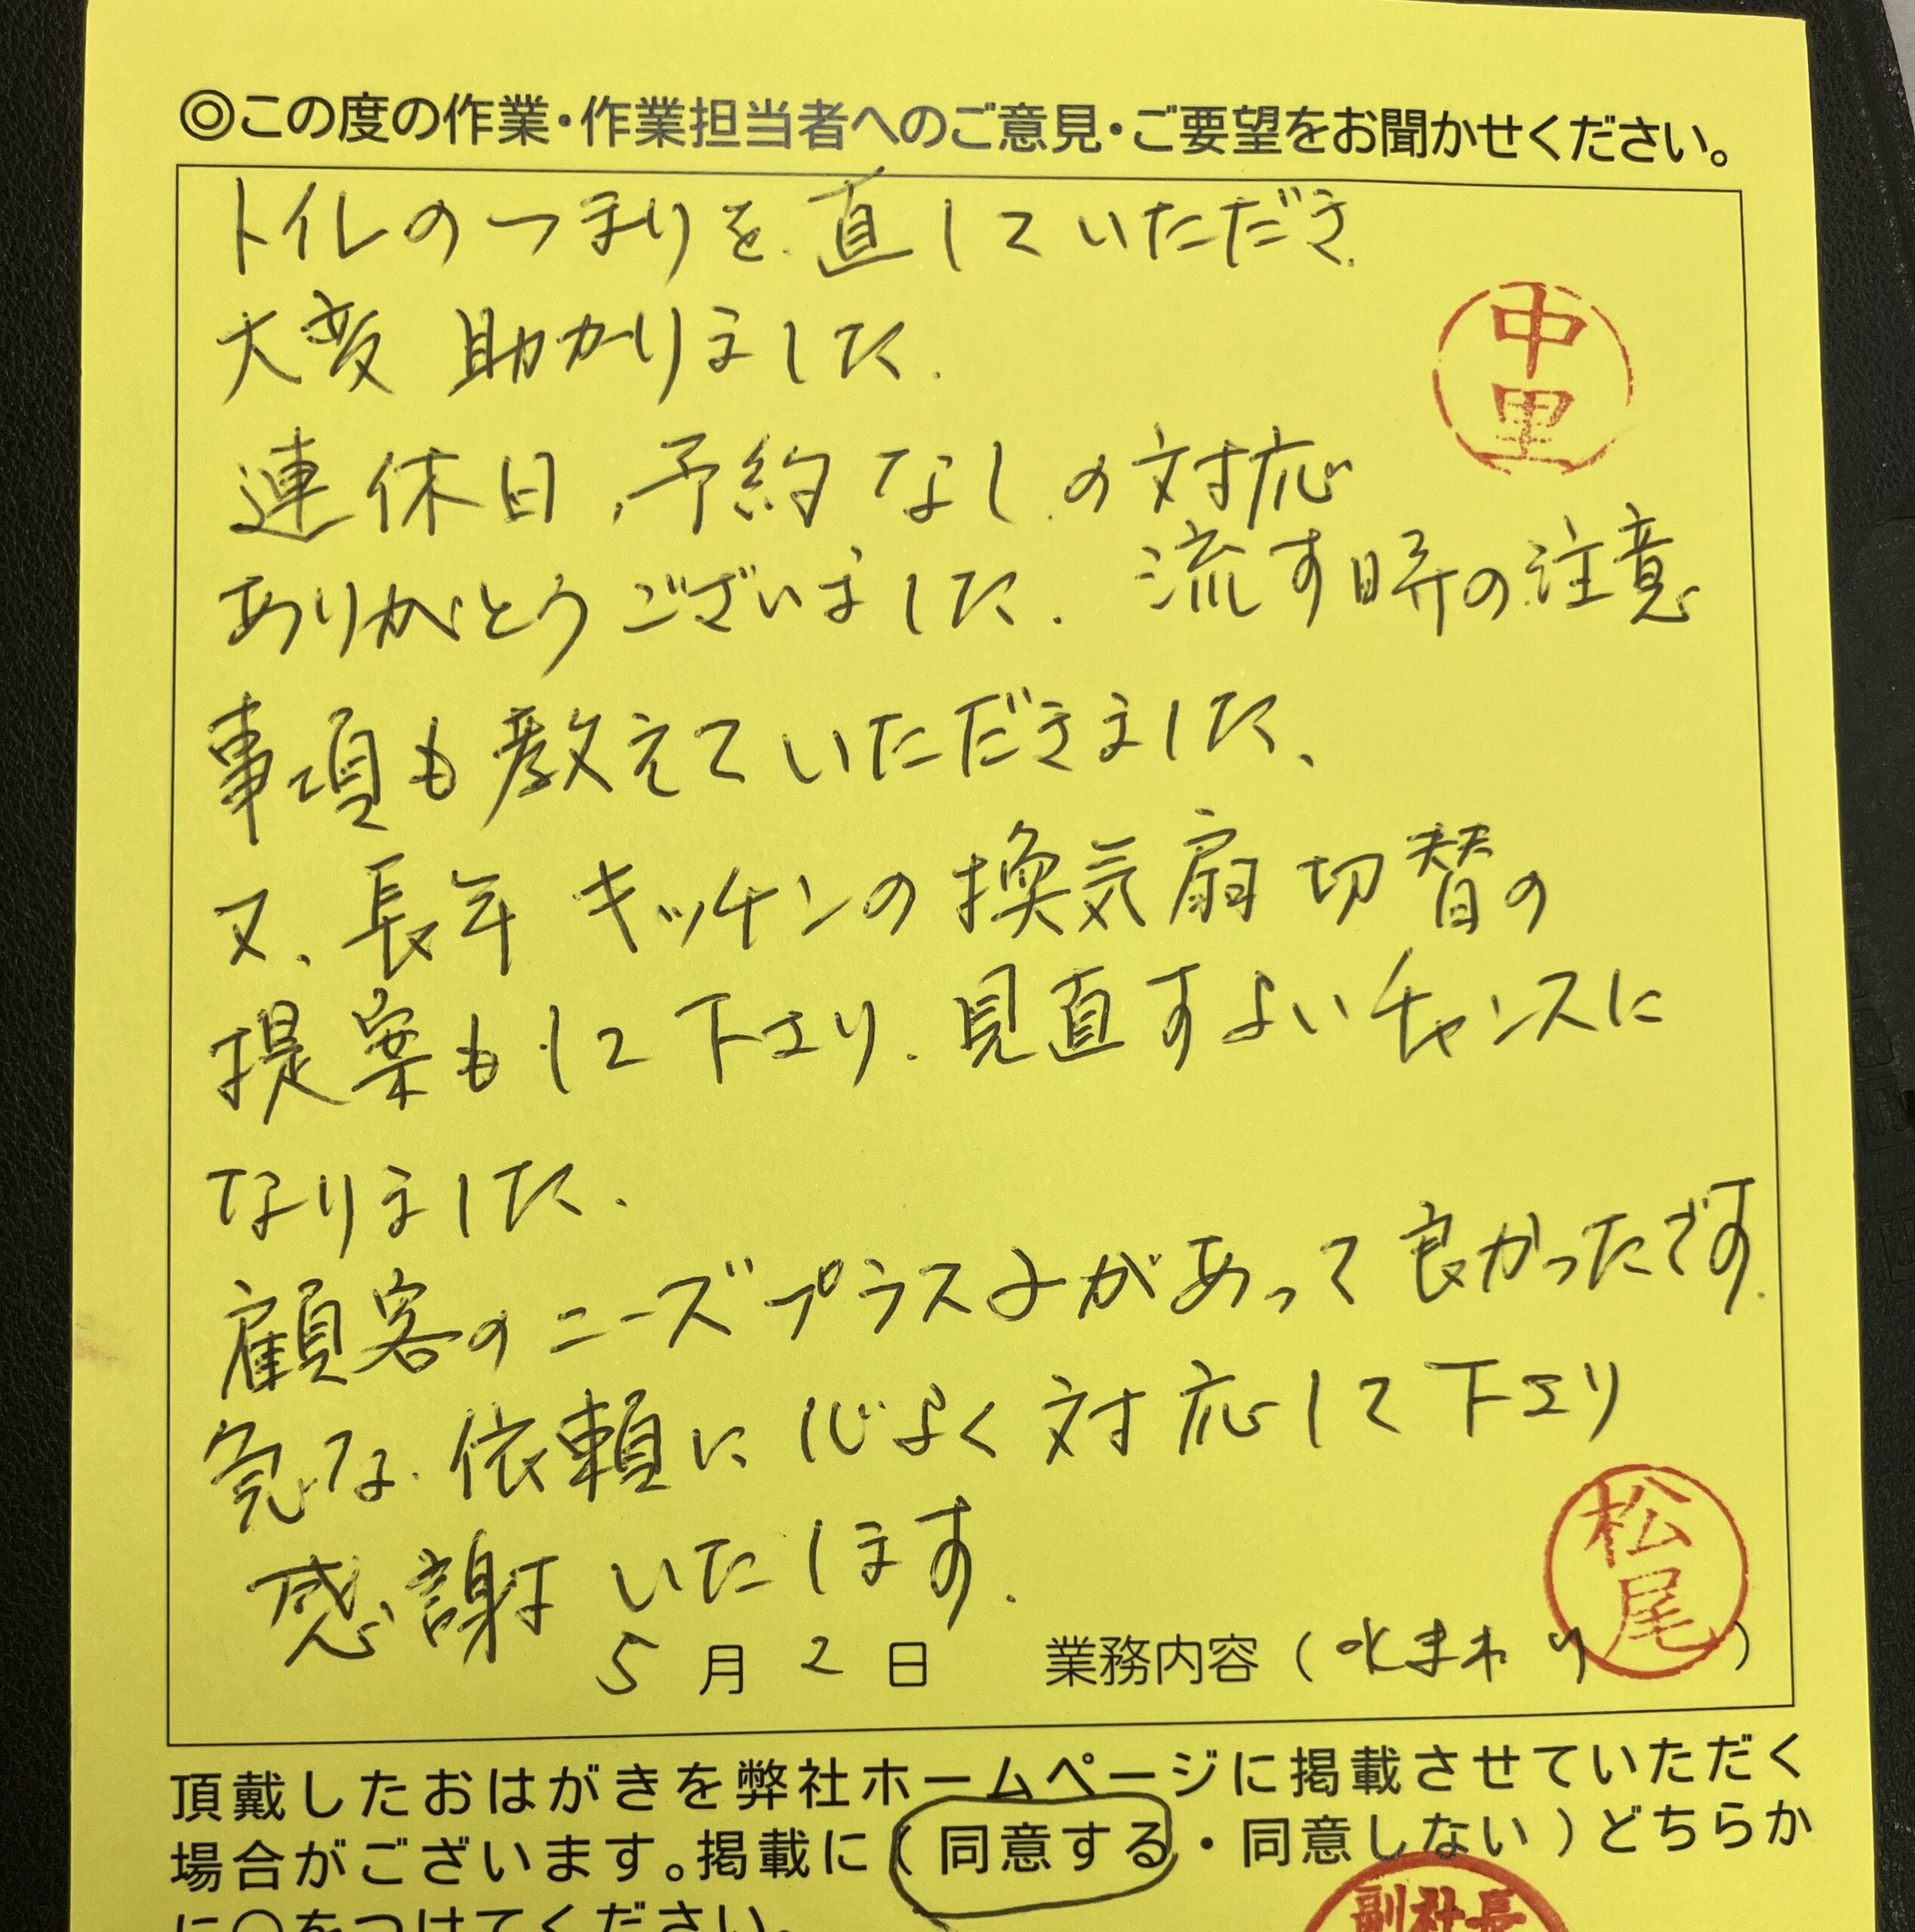 ◎この度の作業・作業担当者へのご意見・ご要望をお聞かせください。
トイレのつまりを直していただき
大変助かりました.
中里
連休日、予約なしの対応
ありがとうございました. 流す時の注意
事項も教えていただきました、
又、長年キッチンの換気扇切替の
提案もして下さり、見直すよいチャンスに
なりました.
顧客のニーズプラスαがあって良かったです.
急な依頼に心よく対応して下さり
感謝いたします.
松尾
5月2日 業務内容(水まわり)
頂戴したおはがきを弊社ホームページに掲載させていただく
場合がございます。掲載に(同意する・同意しない)どちらか
に○をつけてください。
副社長